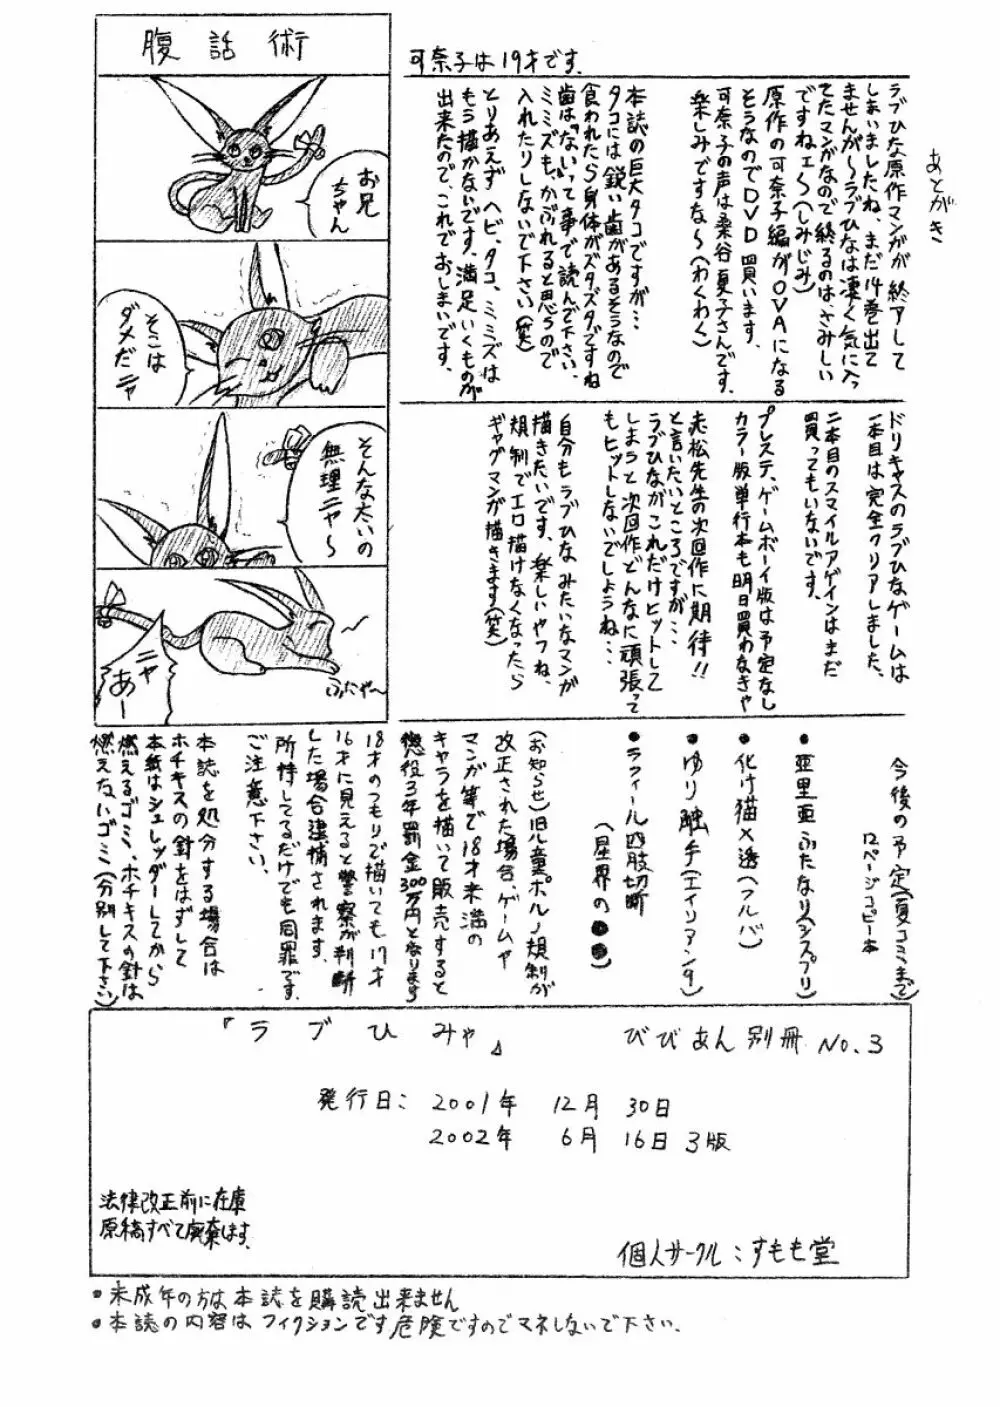 腹話術
お兄
ちゃん
そこは
ダメだニャ
そんな太いの
無理ニャ～
ニャ
あー
ふにゃ～
あとがき
可奈子は19才です.
ラブひな原作マンガが終アして
しまいましたね、まだ14巻出て
ませんが～ラブひなは凄く気に入っ
てたマンガなので終るのは、さみしい
ですねェ～(しみじみ)
原作の可奈子編がOVAになる
そうなのでDVD買います。
可奈子の声は桑谷夏子さんです。
楽しみですな～(わくわく)
本誌の巨大タコですが…
タコには鋭い歯があるそうなので
食われたら身体がズタズタですね
歯は「ない」って事で読んで下さい、
ミミズも、かぶれると思うので
入れたりしないで下さい(笑)
とりあえず ヘビ、タコ、ミミズは
もう描かないです。満足いくものが
出来たので、これでおしまいです。
ドリキャスのラブひなゲームは
一本目は完全クリアしました、
二本目のスマイルアゲインはまだ
買ってもいないです。
プレステ、ゲームボーイ版は予定なし
カラー版単行本も明日買わなきゃ
赤松先生の次回作に期待!!
と言いたいところですが…
ラブひながこれだけヒットして
しまうと次回作どんなに頑張って
もヒットしないでしょうね…
自分もラブひなみたいなマンガ
描きたいです、楽しいやつね、
規制でエロ描けなくなったら
ギャグマンガ描きます(笑)
今後の予定(夏コミまで)
12ページコピー本
●亜里亜ふたなり(シスプリ)
●化け猫×透(フルバ)
●ゆり触手(エイリアン9)
●ラフィール四肢切断
(星界の●●)
(お知らせ)旧児童ポルノ規制が
改正された場合、ゲームや
マンガ等で18才未満の
キャラを描いて販売すると
懲役3年罰金300万円となります
18才のつもりで描いても17才
16才に見えると警察が判断
した場合逮捕されます。
所持してるだけでも同罪です.
ご注意下さい。
本誌を処分する場合は
ホチキスの針をはずして
本紙はシュレッダーしてから
燃えるゴミ、ホチキスの針は
燃えないゴミ(分別して下さい)
『ラブひみゃ』 びびあん別冊 No.3
発行日: 2001年 12月 30日
2002年 6月 16日 3版
法律改正前に在庫
原稿すべて廃棄します.
個人サークル:すもも堂
●未成年の方は本誌を購読出来ません
●本誌の内容はフィクションです危険ですのでマネしないで下さい.